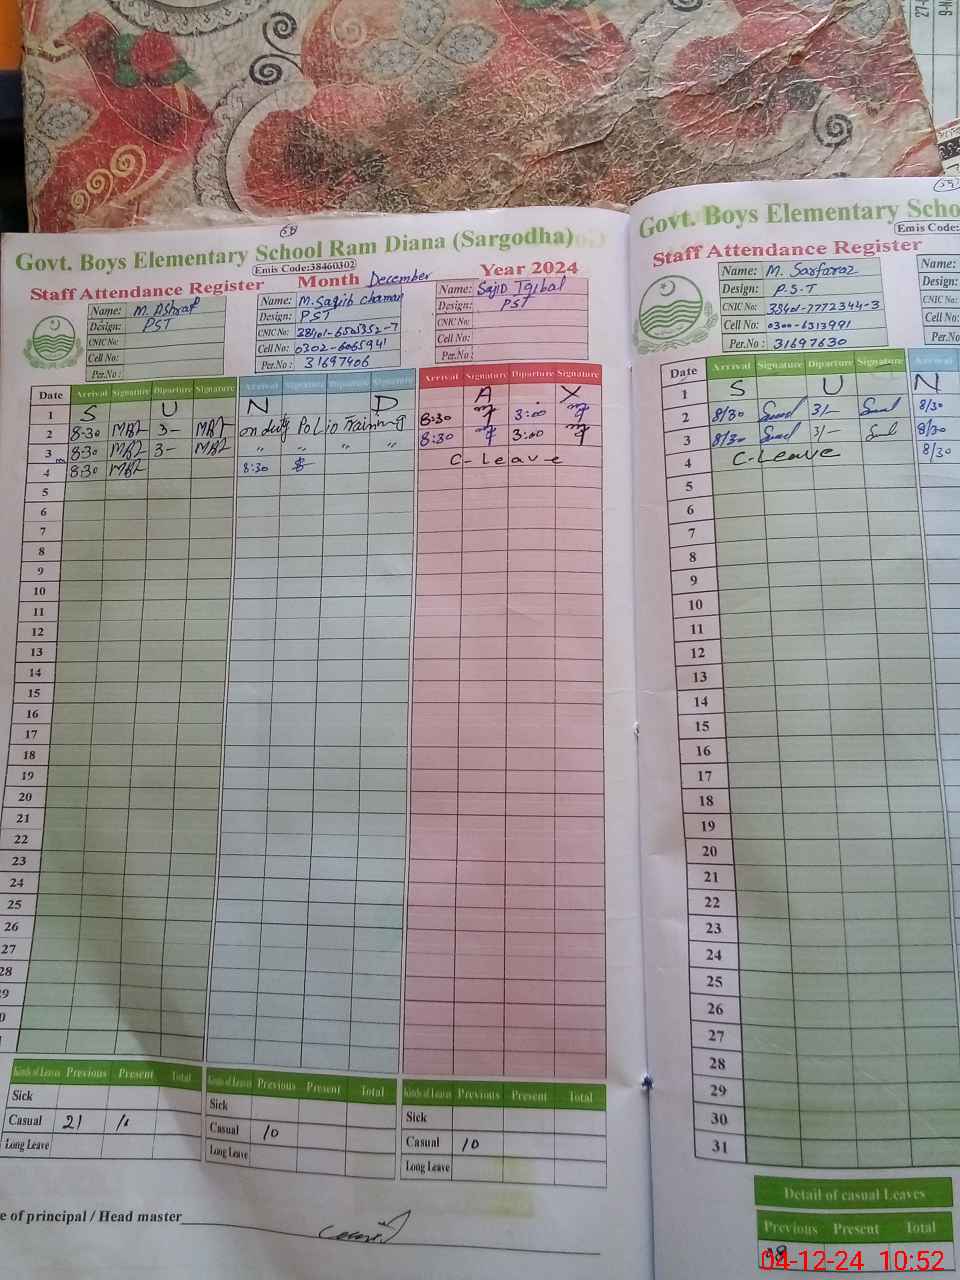 Govt. Boys Elementary School Ram Diana (Sargodha)
Emis Code:38460302
Staff Attendance Register Month December Year 2024
Name: M. Ashraf
Design: PST
CNIC No:
Cell No:
Per.No :
Name: M. Saqib chaman
Design: PST
CNIC No:
Cell No: 0302-6065941
Per.No : 31697406
Name: Sajid Iqbal
Design: PST
CNIC No:
Cell No:
Per.No :
Date Arrival Signature Diparture Signature Arrival Signature Diparture Signature Arrival Signature Diparture Signature
1 S U N D A . X
2 8:30 3- on duty Polio Training 8:30 3:00
3 8:30 3- " " " " 8:30 3:00
4 8:30 8:30 C-Leave
5
6
7
8
9
10
11
12
13
14
15
16
17
18
19
20
21
22
23
24
25
26
27
28
Kinds of Leaves Previous Present Total Kinds of Leaves Previous Present Total Kinds of Leaves Previous Present Total
Sick Sick Sick
Casual 21 Casual 10 Casual 10
Long Leave Long Leave Long Leave
e of principal / Head master
Govt. Boys Elementary Scho
Emis Code:
Staff Attendance Register
Name: M. Sarfaraz
Design: P.S.T
CNIC No: 38401-7772344-3
Cell No: 0300-6313991
Per.No : 31697630
Name:
Design:
CNIC No:
Cell No:
Per.No
Date Arrival Signature Diparture Signature Arrival
1 S U N
2 8/30 3/- 8/30
3 8/30 3/- 8/30
4 C-Leave 8/30
5
6
7
8
9
10
11
12
13
14
15
16
17
18
19
20
21
22
23
24
25
26
27
28
29
30
31
Detail of casual Leaves
Previous Present Total
04-12-24 10:52